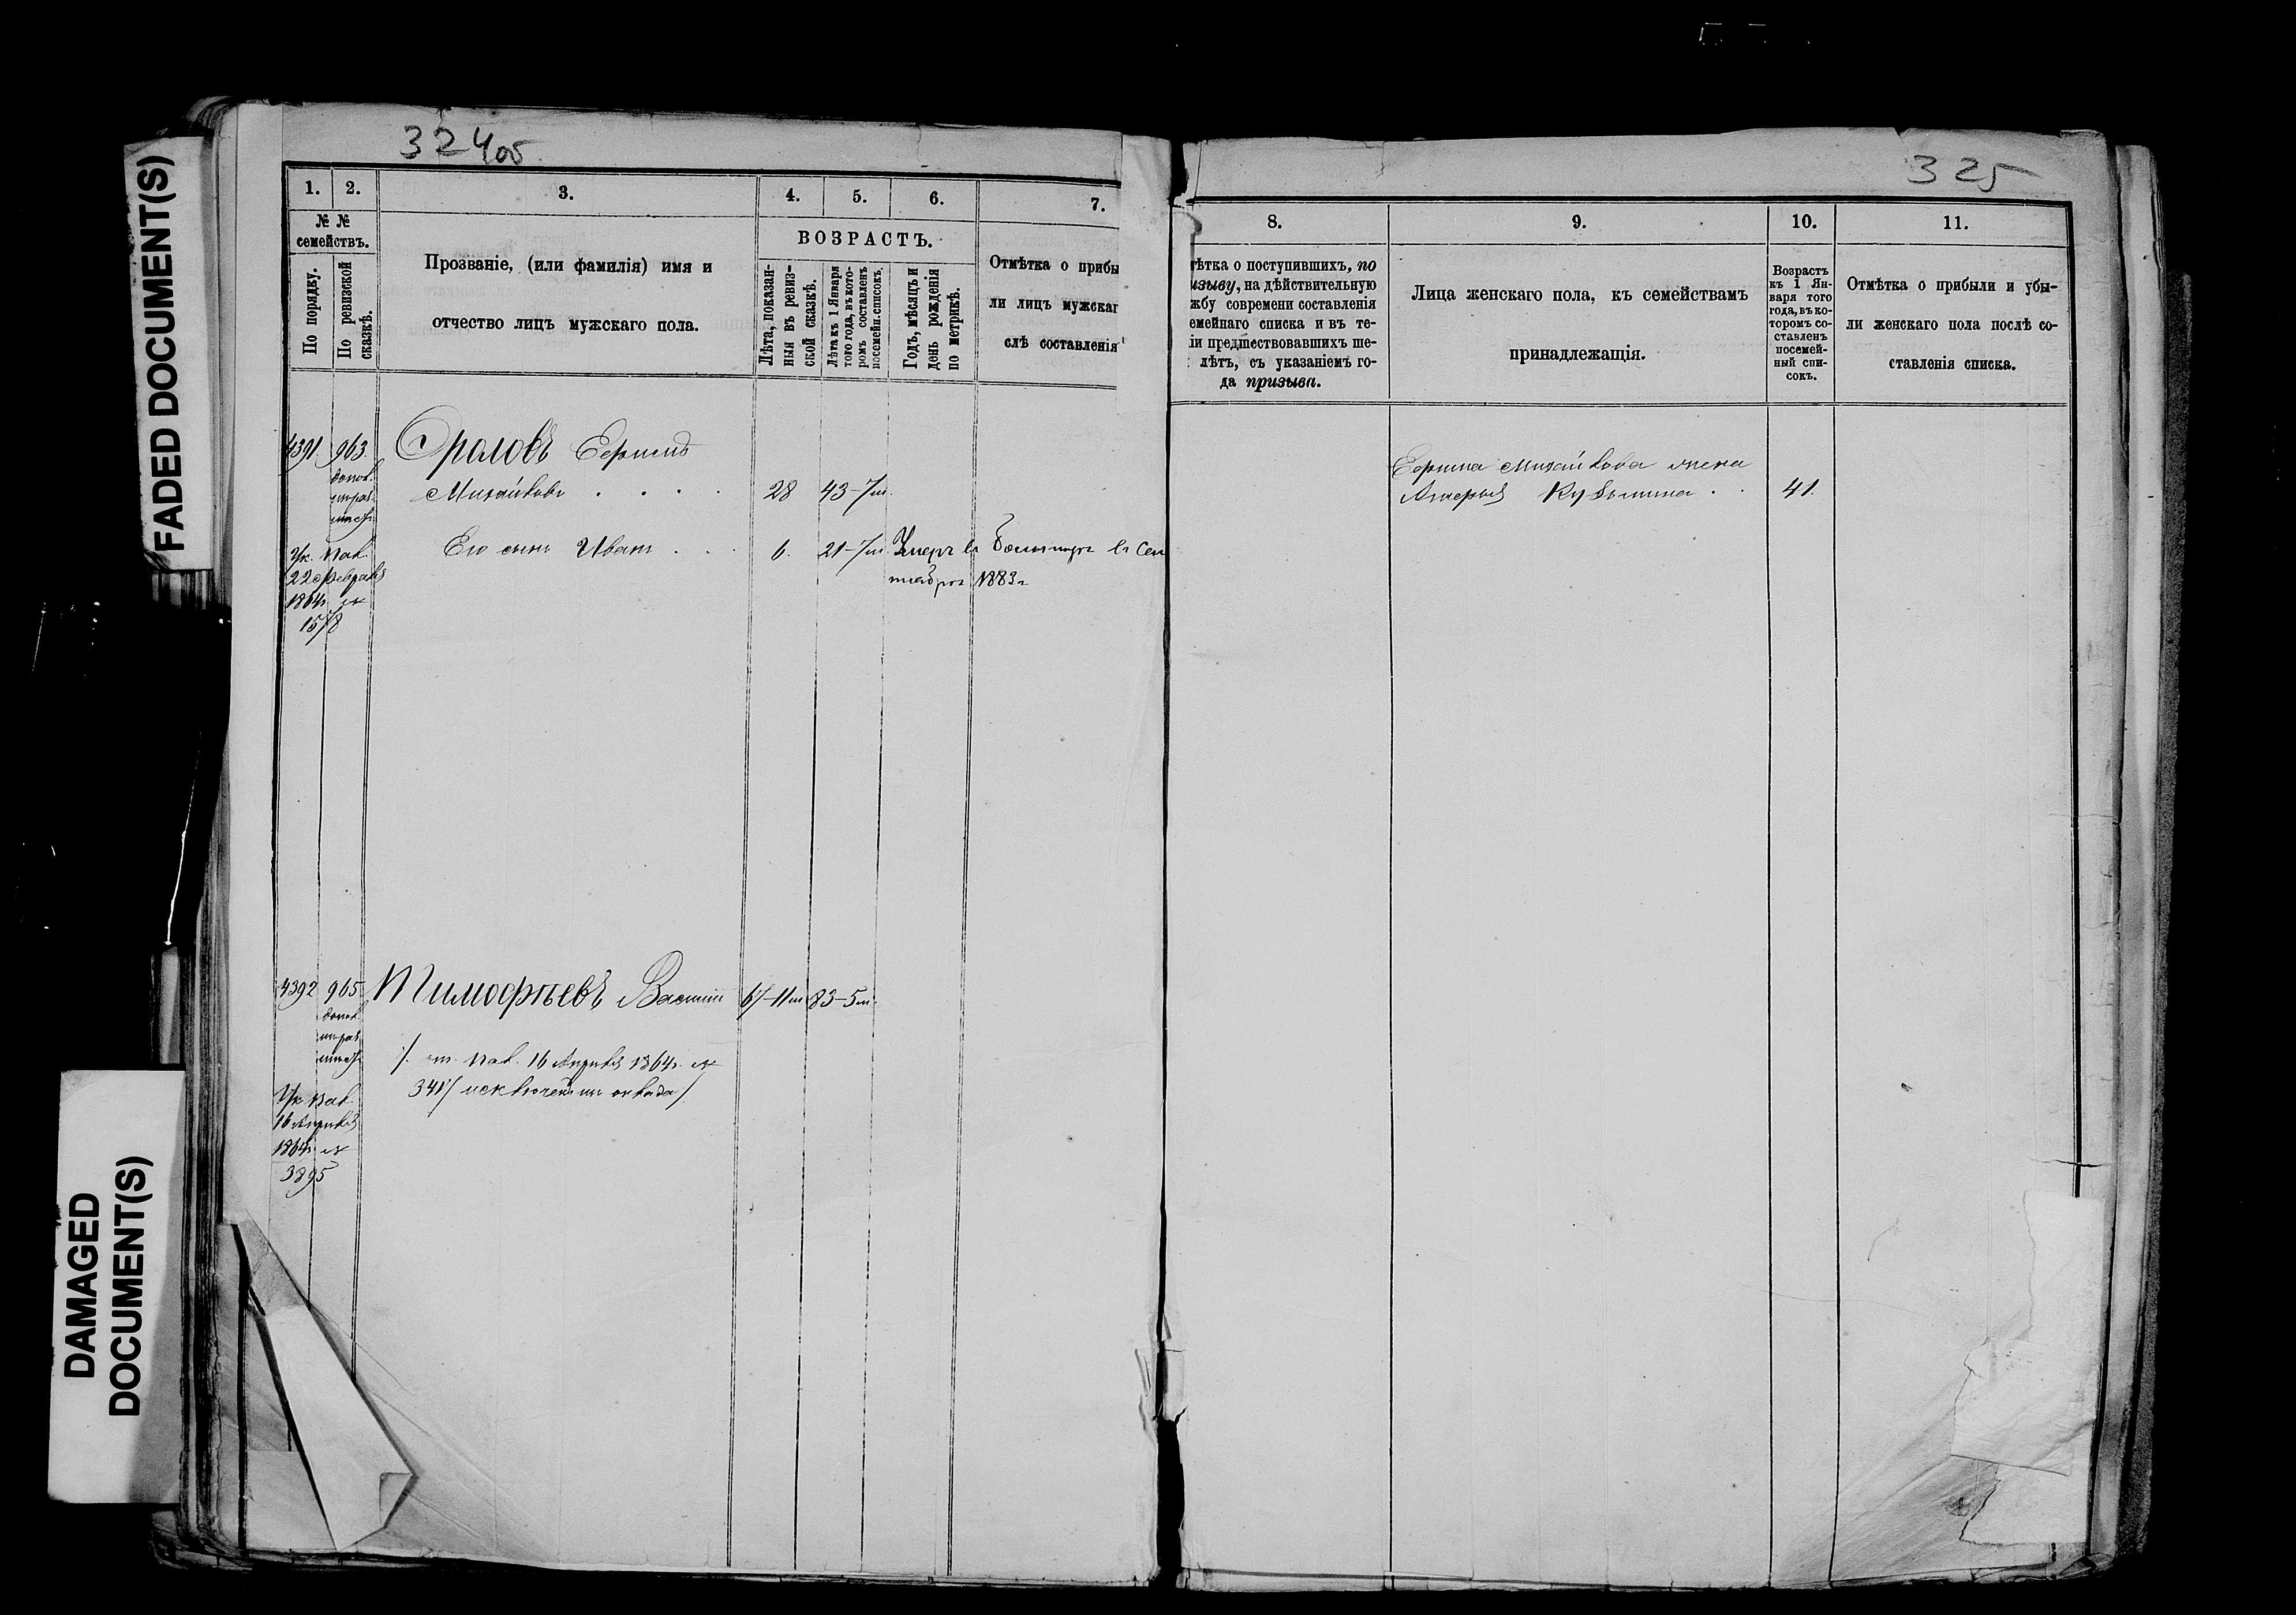 FADED DOCUMENT(S)
DAMAGED
DOCUMENT(S)
324об
1. 2. 3. 4. 5. 6. 7.
№ №
семействъ.
По порядку.
По ревизской
сказкѣ.
Прозваніе, (или фамилія) имя и
отчество лицъ мужскаго пола.
ВОЗРАСТЪ.
Лѣта, показан-
ныя въ ревиз-
ской сказкѣ.
Лѣта къ 1 Января
того года, въ кото-
ромъ составленъ
посемейн. списокъ.
Годъ, мѣсяцъ и
день рожденія
по метрикѣ.
Отмѣтка о прибы
ли лицъ мужскаг
слѣ составленія
4391. 963. Орловъ
Михайловъ . . . . 28 43-7м.
Его сынъ Иванъ . . . 6. 21-7м Умеръ въ въ Сен
тября 1883г
Ук. Пал.
22 Февраля
1864г №
1578
4392 965 Тимофѣевъ Василій 67-11м 83-5м.
16 Апрѣля 1864г. №
3417 исключенъ изъ оклада/
Ук. Пал.
16 Апрѣля
1864г №
3895
325
8. 9. 10. 11.
ѣтка о поступившихъ, по
изыву, на дѣйствительную
жбу современи составленія
емейнаго списка и въ те-
іи предшествовавшихъ ше-
лѣтъ, съ указаніемъ го-
да призыва.
Лица женскаго пола, къ семействамъ
принадлежащія.
Возрастъ
къ 1 Ян-
варя того
года, въ ко-
торомъ со-
ставленъ
посемей-
ный спи-
сокъ.
Отмѣтка о прибыли и убы-
ли женскаго пола послѣ со-
ставленія списка.
Михайлова жена
Кузьмина . . 41.